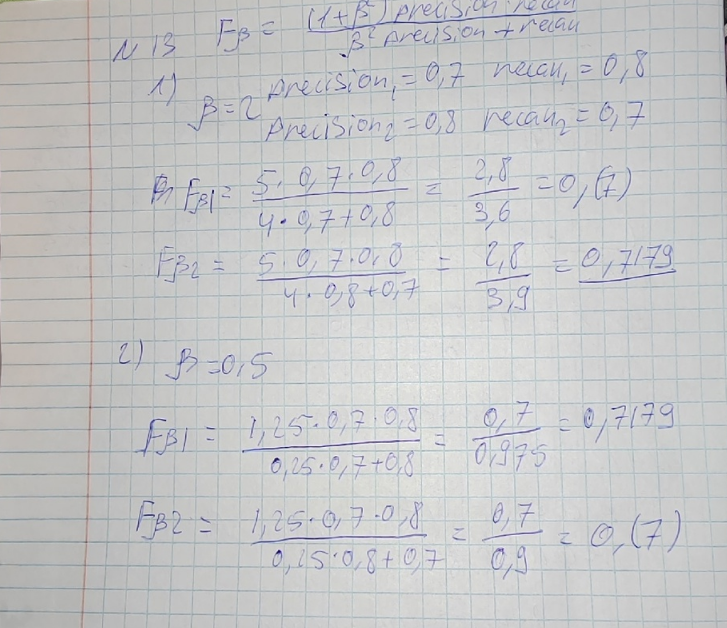 N 13 Fβ = (1+β²) precision · recall / β² precision + recall
1) β=2 precision₁ = 0,7 recall₁ = 0,8
precision₂ = 0,8 recall₂ = 0,7
Fβ1 = 5·0,7·0,8 / 4·0,7+0,8 = 2,8 / 3,6 = 0,(7)
Fβ2 = 5·0,7·0,8 / 4·0,8+0,7 = 2,8 / 3,9 = 0,7179
2) β=0,5
Fβ1 = 1,25·0,7·0,8 / 0,25·0,7+0,8 = 0,7 / 0,975 = 0,7179
Fβ2 = 1,25·0,7·0,8 / 0,25·0,8+0,7 = 0,7 / 0,9 = 0,(7)